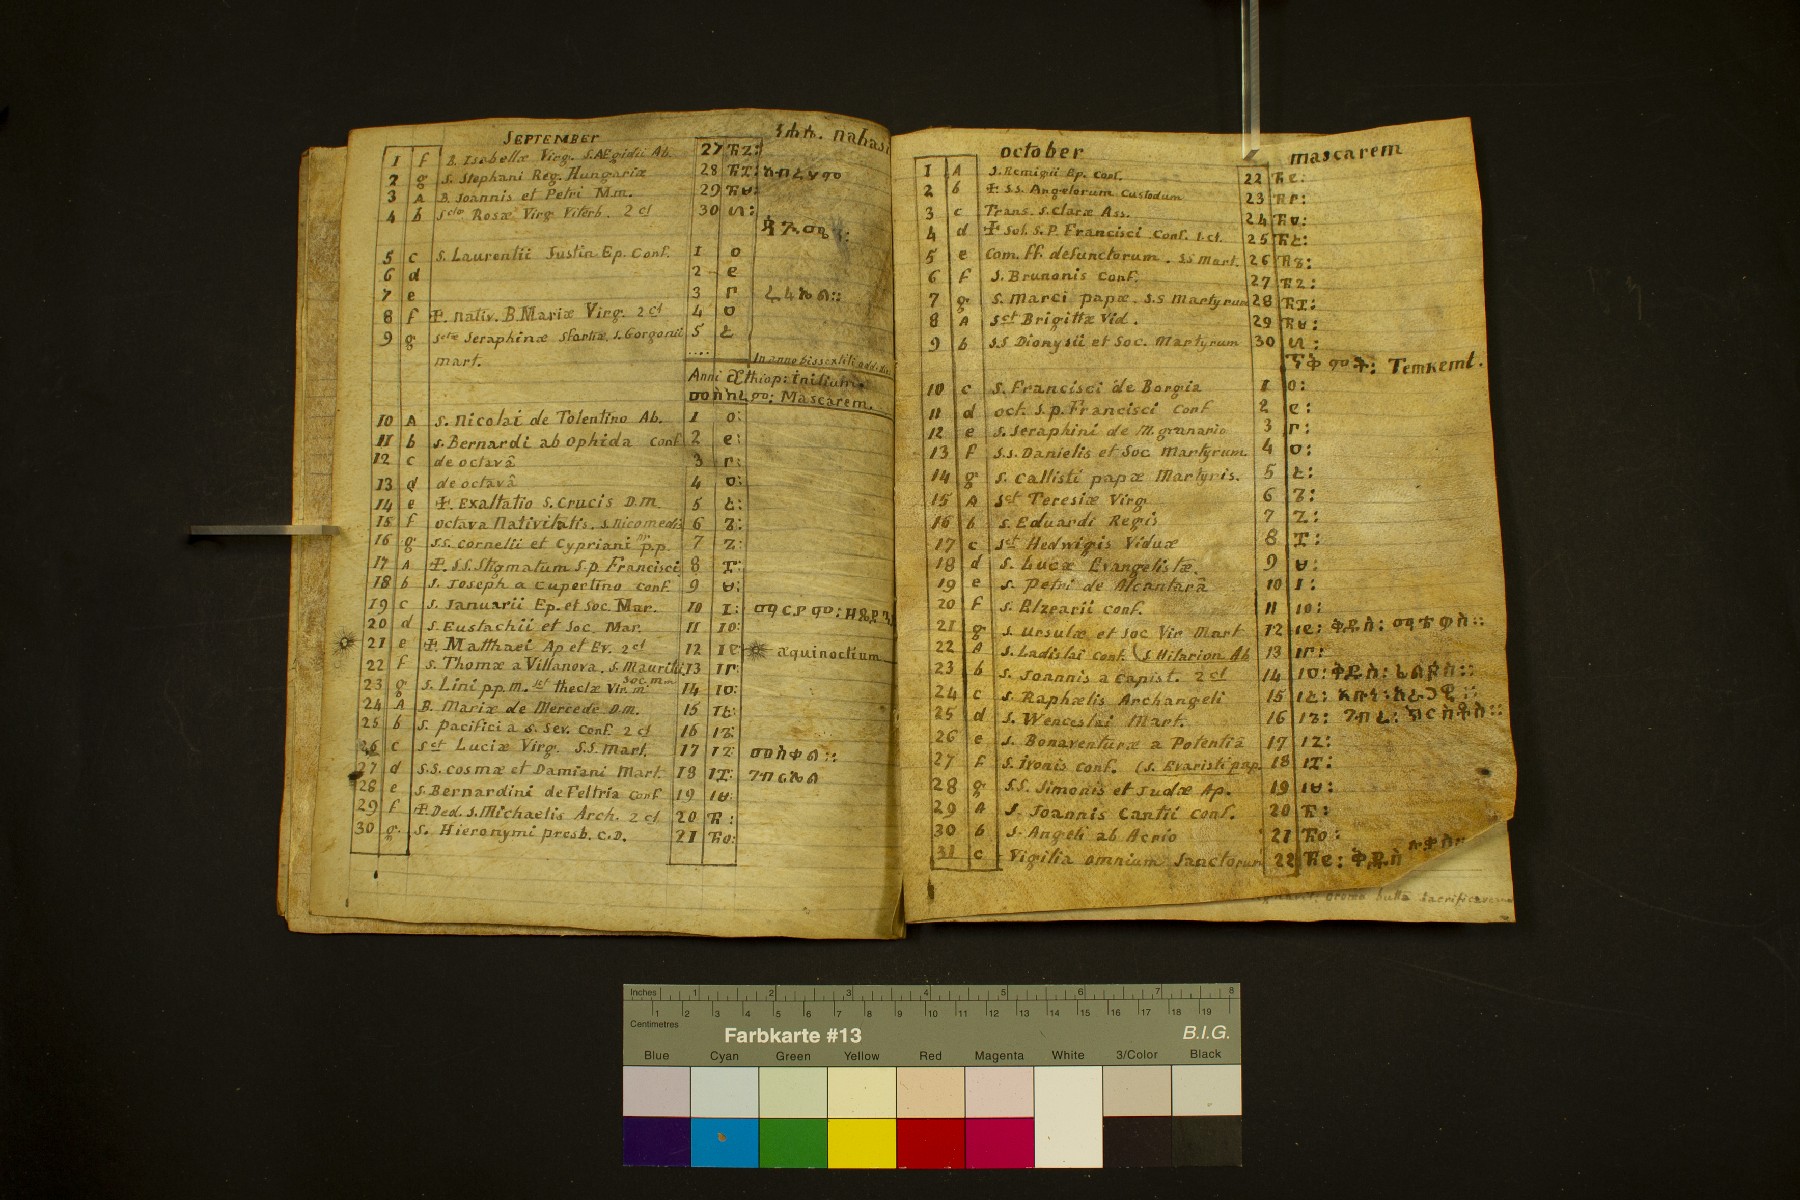 SEPTEMBER
ነሐሴ. nahasi
1 f B. Isabellæ Virg. S. AEgidii Ab. 27 ፳፯፡
2 g S. Stephani Reg. Hungariæ 28 ፳፰፡ አብርሃም
3 A B. Joannis et Petri M.m. 29 ፳፱፡
4 b Sctæ Rosæ Virg. Viterb. 2 cl 30 ፴፡
ጳጉሜን፡
5 c S. Laurentii Justin Ep. Conf. 1 ፩
6 d 2 ፪
7 e 3 ፫ ሩፋኤል።
8 f ✠. nativ. B. Mariæ Virg. 2 cl 4 ፬
9 g Sctæ Seraphinæ Sfortiæ. S. Gorgonii 5 ፭
mart. ....
In anno bissextili add.
Anni Æthiop: initium.
መስከረም: Mascarem.
10 A S. Nicolai de Tolentino Ab. 1 ፩፡
11 b S. Bernardi ab Ophida Conf 2 ፪፡
12 c de octavâ 3 ፫፡
13 d de octavâ 4 ፬፡
14 e ✠. Exaltatio S. Crucis D.m. 5 ፭፡
15 f octava Nativitatis. S. Nicomedis 6 ፮፡
16 g S.S. Cornelii et Cypriani m. p.p. 7 ፯፡
17 A ✠. S.S. Stigmatum S.p. Francisci 8 ፰፡
18 b S. Joseph a Cupertino Conf. 9 ፱፡
19 c S. Januarii Ep. et Soc. Mar. 10 ፲፡ ማርያም፡
20 d S. Eustachii et Soc. Mar. 11 ፲፩፡
21 e ✠ Matthaei Ap et Ev. 2 cl 12 ፲፪ æquinoctium
22 f S. Thomæ a Villanova. S. Mauritii 13 ፲፫፡
soc. m.m
23 g S. Lini pp.m. sct theclæ Vir. m 14 ፲፬፡
24 A B. Mariæ de Mercede D.m. 15 ፲፭፡
25 b S. Pacifici a S. Sev. Conf. 2 cl 16 ፲፮፡
26 c Sct Luciæ Virg. S.S. Mart. 17 ፲፯፡ መስቀል።
27 d S.S. Cosmæ et Damiani Mart. 18 ፲፰፡ ገብርኤል
28 e S. Bernardini de Feltria Conf 19 ፲፱፡
29 f ✠ Ded. S. Michaelis Arch. 2 cl. 20 ፳፡
30 g. S. Hieronymi presb. C.D. 21 ፳፩፡
october
mascarem
1 A S. Remigii Ep. Conf. 22 ፳፪፡
2 b ✠ S.S. Angelorum Custodum 23 ፳፫፡
3 c Trans. S. Claræ Ass. 24 ፳፬፡
4 d ✠ Sol. S.P. Francisci Conf. 1. cl. 25 ፳፭፡
5 e Com. ff. defunctorum. SS Mart. 26 ፳፮፡
6 f S. Brunonis Conf. 27 ፳፯፡
7 g S. Marci papæ. S.S Martyrum 28 ፳፰፡
8 A Sct Brigittæ Vid. 29 ፳፱፡
9 b S.S Dionysii et Soc. Martyrum 30 ፴፡
ጥቅምት፡ Temkemt.
10 c S. Francisci de Borgia 1 ፩፡
11 d oct. S.p. Francisci Conf 2 ፪፡
12 e S. Seraphini de M. granario 3 ፫፡
13 f S.S. Danielis et Soc Martyrum 4 ፬፡
14 g S. Callisti papæ Martyris. 5 ፭፡
15 A Sct Teresiæ Virg 6 ፮፡
16 b S. Eduardi Regis 7 ፯፡
17 c Sct Hedwigis Viduæ 8 ፰፡
18 d S. Lucæ Evangelistæ. 9 ፱፡
19 e S. Petri de Alcantarâ 10 ፲፡
20 f S. Elzearii Conf. 11 ፲፩፡
21 g S. Ursulæ et Soc Vir Mart. 12 ፲፪፡ ቅዱስ፡ ማቴዎስ።
22 A S. Ladislai Conf. (S Hilarion Ab 13 ፲፫፡
23 b S. Joannis a Capist. 2 cl 14 ፲፬፡ ቅዱስ፡
24 c S. Raphælis Archangeli 15 ፲፭፡
25 d S. Wenceslai Mart. 16 ፲፮፡ ገብረ፡ ክርስቶስ።
26 e S. Bonaventuræ a Potentiâ 17 ፲፯፡
27 f S. Ivonis Conf. (S. Evaristi pap. 18 ፲፰፡
28 g S.S. Simonis et Judæ Ap. 19 ፲፱፡
29 A S. Joannis Cantii Conf. 20 ፳፡
30 b S. Angeli ab Acrio 21 ፳፩፡
31 c Vigilia omnium Sanctorum 22 ፳፪፡ ቅዱስ ሉቃስ።
oromo sacrificaverunt
Inches 1 2 3 4 5 6 7 8
Centimetres 1 2 3 4 5 6 7 8 9 10 11 12 13 14 15 16 17 18 19
Farbkarte #13 B.I.G.
Blue Cyan Green Yellow Red Magenta White 3/Color Black